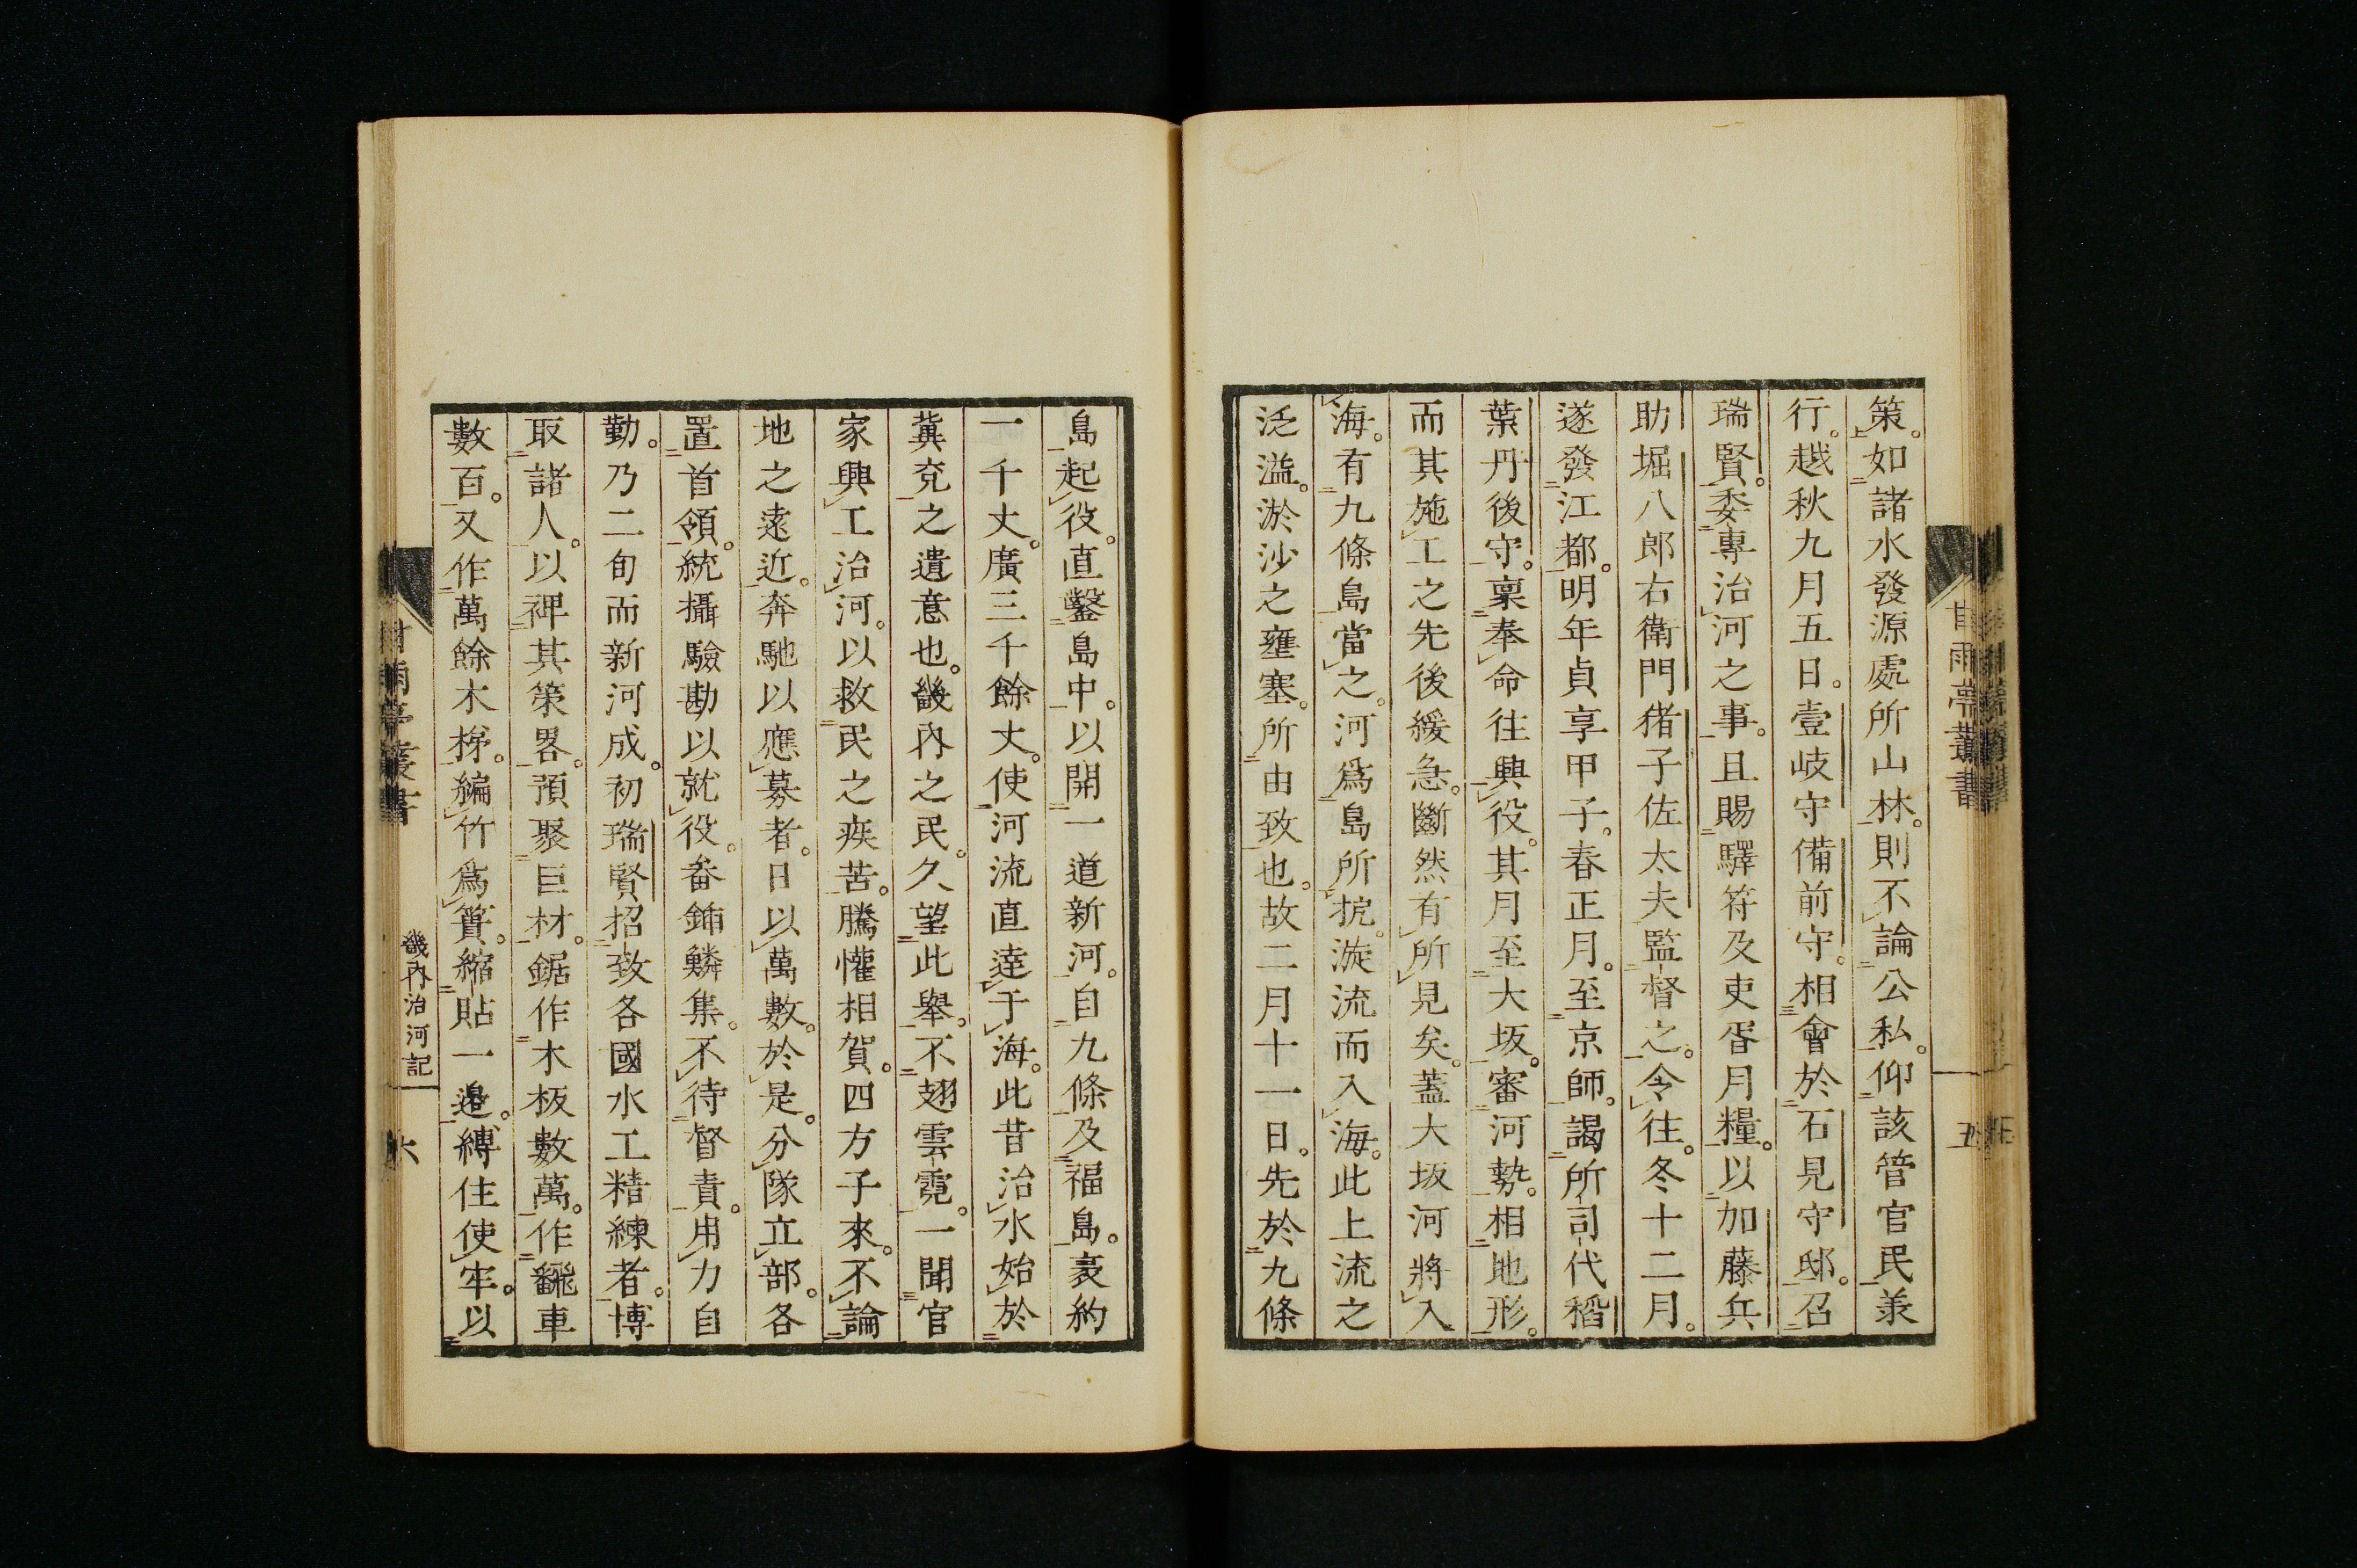 策。如諸水發源處所山林。則不論公私。仰該管官民兼
行。越秋九月五日。壹岐守備前守。相會於石見守邸。召
瑞賢。委專治河之事。且賜驛符及吏胥月糧。以加藤兵
助堀八郎右衛門猪子佐太夫監督之。令往。冬十二月。
遂發江都。明年貞享甲子。春正月。至京師。謁所司代稻
葉丹後守。稟奉命往興役。其月至大坂。審河勢。相地形。
而其施工之先後緩急。斷然有所見矣。蓋大坂河將入
海。有九條島當之。河爲島所扼。漩流而入海。此上流之
泛溢。淤沙之壅塞。所由致也。故二月十一日。先於九條
甘雨亭叢書
五
島起役。直鑿島中。以開一道新河。自九條及福島。袤約
一千丈。廣三千餘丈。使河流直達于海。此昔治水始於
冀兗之遺意也。畿內之民。久望此舉。不翅雲霓。一聞官
家興工治河。以救民之疾苦。騰懽相賀。四方子來。不論
地之遠近。奔馳以應募者。日以萬數。於是。分隊立部。各
置首領。統攝驗勘以就役。畚鍤鱗集。不待督責。用力自
勤。乃二旬而新河成。初瑞賢招致各國水工精練者。博
取諸人。以裨其策畧。預聚巨材。鋸作木板數萬。作飜車
數百。又作萬餘木梯。編竹爲簀。縮貼一邊。縛住使牢。以
甘雨亭叢書
畿內治河記
六